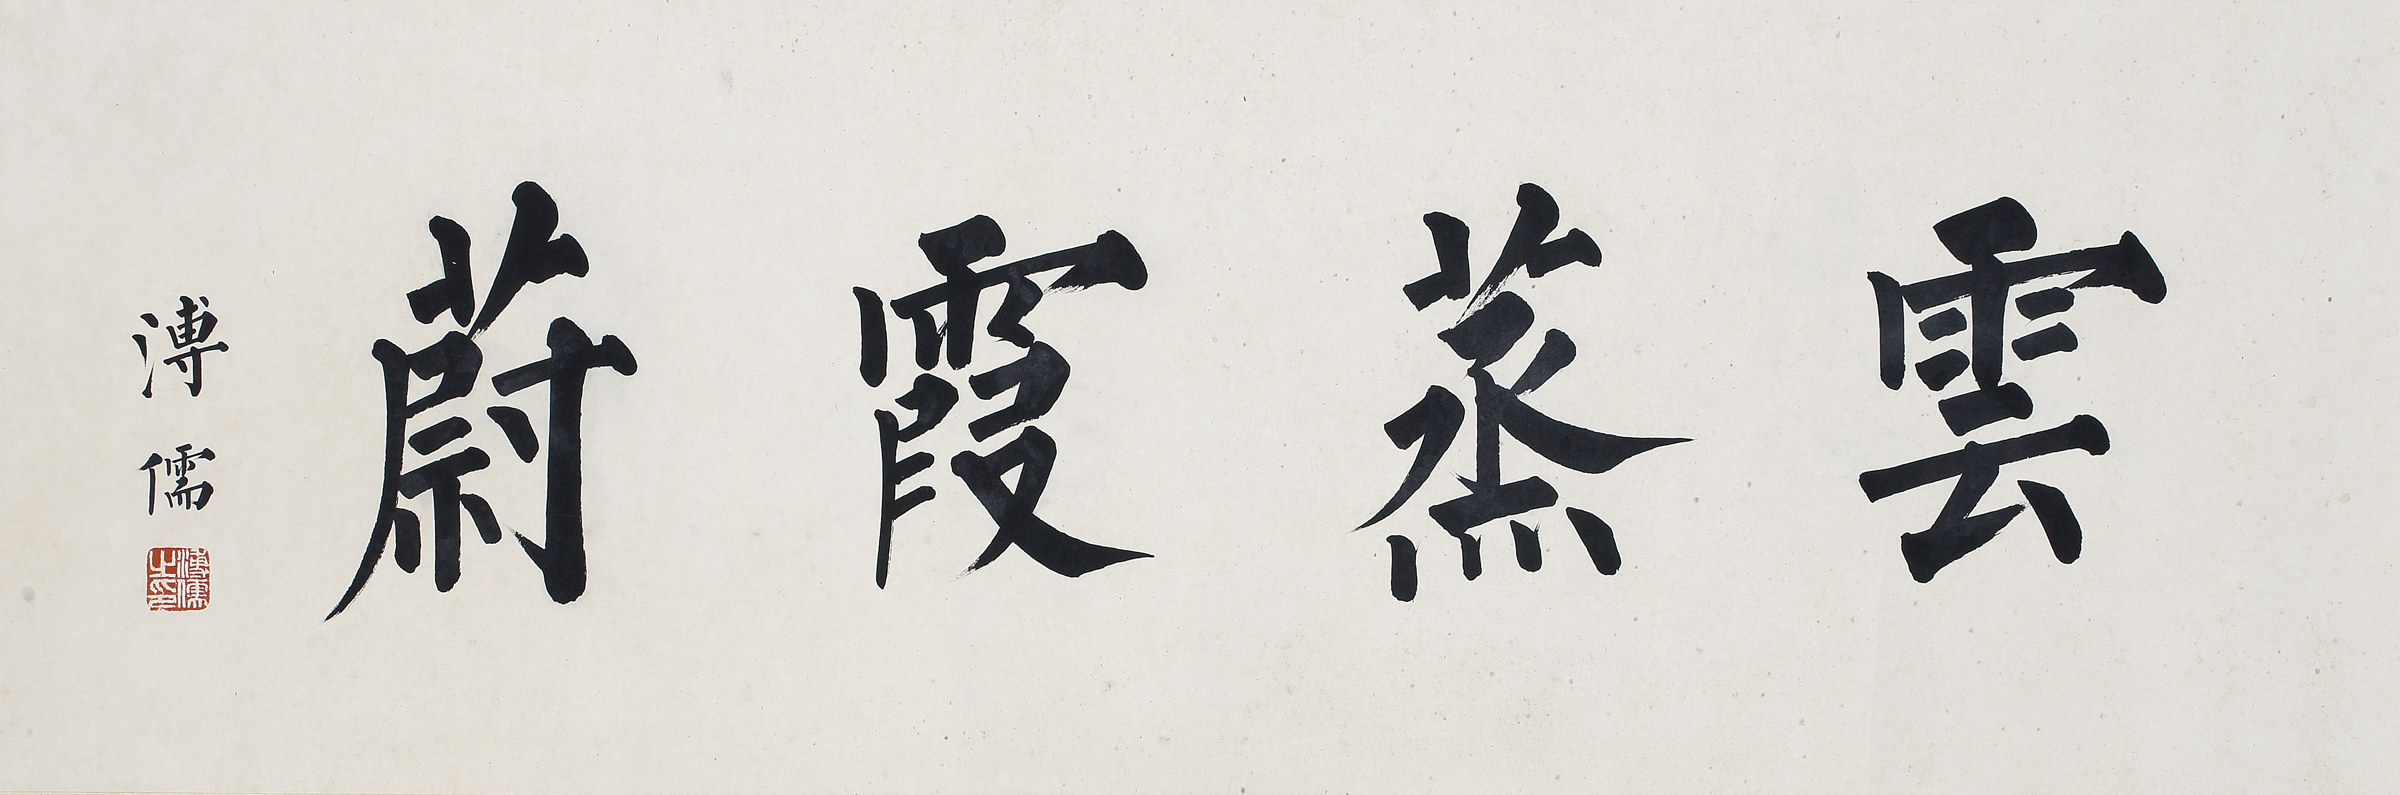 雲蒸霞蔚
溥儒
溥儒之印